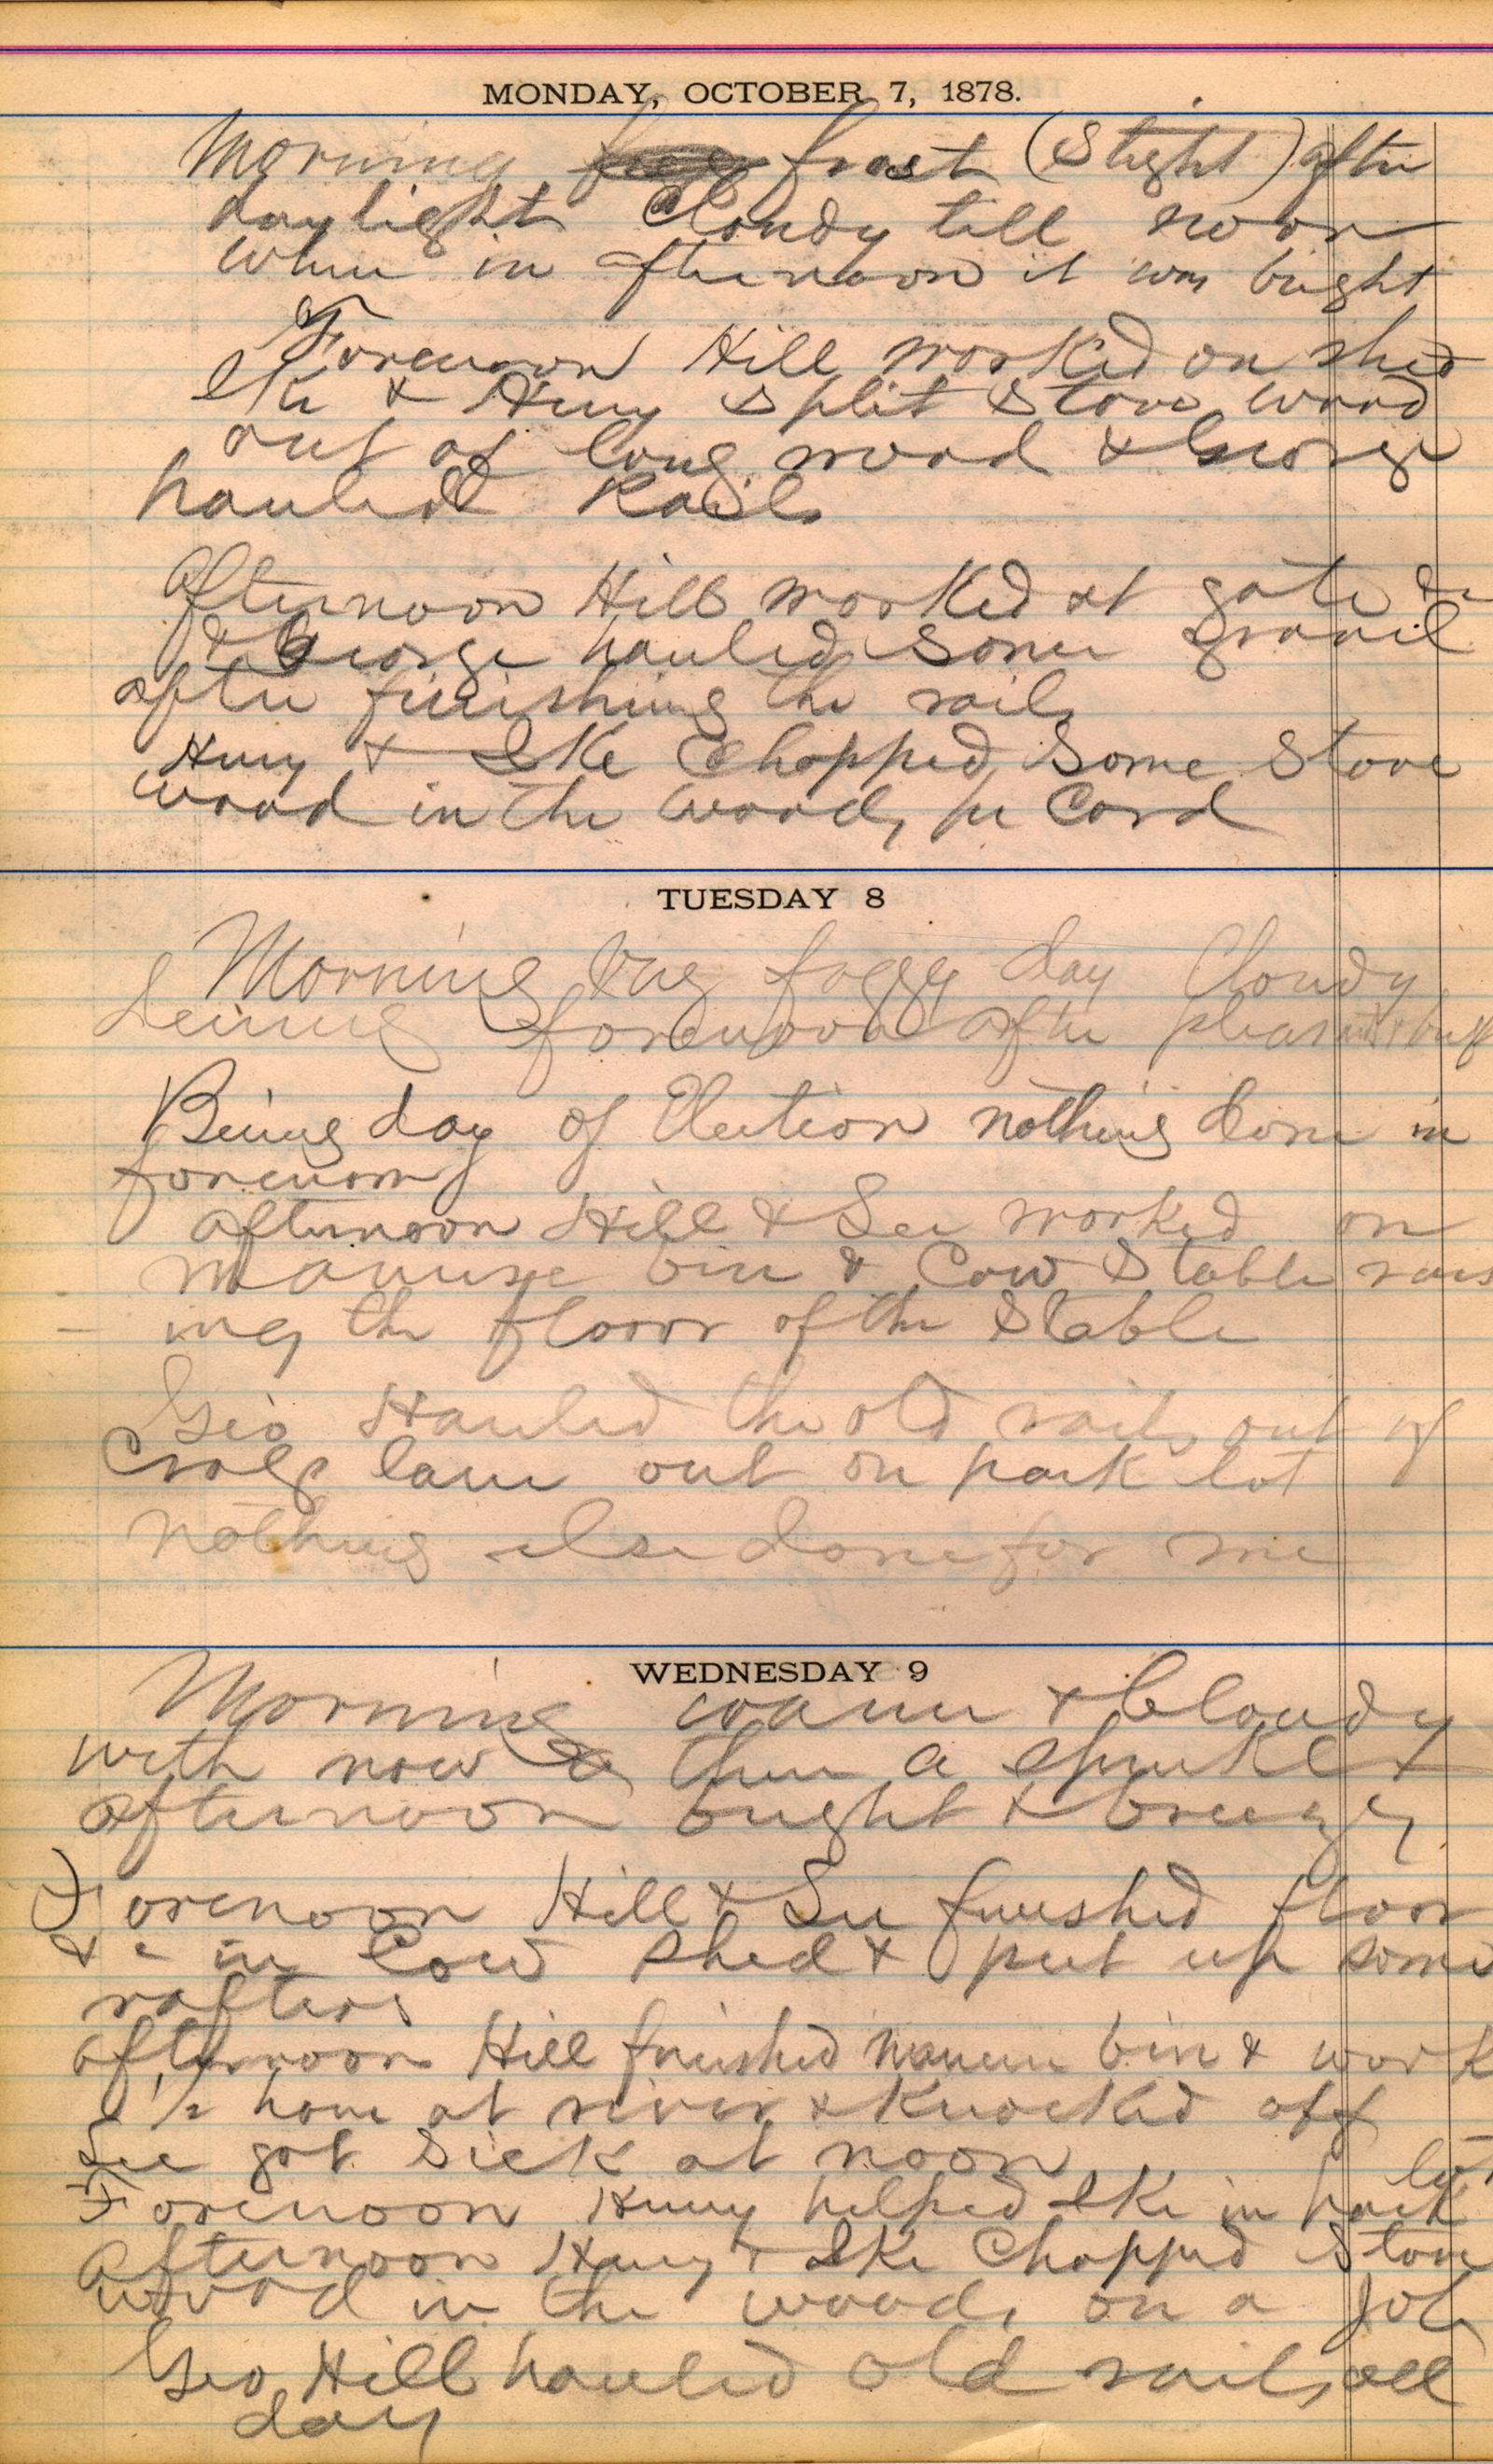 MONDAY, OCTOBER 7, 1878.
Morning frost (Slight) after
daylight Cloudy till noon
when in afternoon it was bright
Forenoon Hill worked on shed
Ike & Henry Split Stove wood
out of long wood & George
hauled Rails
Afternoon Hill worked at gate &c
& George hauled Some gravel
after finishing the rails
Henry & Ike Chopped Some Stove
wood in the woods per Cord
TUESDAY 8
Morning foggy day Cloudy
During forenoon after pleasant &
Being day of Election nothing done in
forenoon
afternoon Hill & Lee worked on
Manure bin & Cow Stable rais
ing the floor of the Stable
Geo Hauled the old rails out of
lane out on park lot
Nothing else done for me
WEDNESDAY 9
Morning warm & Cloudy
with now & then a sprinkle &
afternoon bright & breezy
Forenoon Hill & Lee finished floor
&c in Cow Shed & put up some
rafters
afternoon Hill finished manure bin & work
1/2 hour at river & Knocked off
Lee got Sick at noon
lot
Forenoon Henry helped Ike in park
Afternoon Henry & Ike Chopped Stove
wood in the woods on a Job
Geo Hill hauled old rails all
day